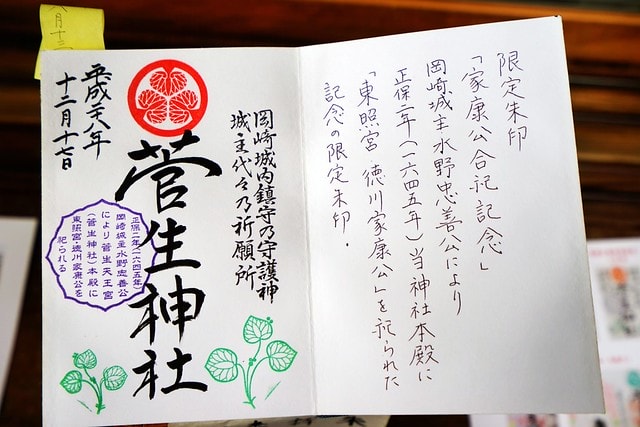 限定朱印
「家康公合祀記念」
岡崎城主水野忠善公により
正保二年(一六四五年)当神社本殿に
「東照宮 徳川家康公」を祀られた
記念の限定朱印.
岡崎城内鎮守乃守護神
城主代々乃祈願所
菅生神社
正保二年(一六四五年)
岡崎城主水野忠善公
により菅生天王宮
(菅生神社)本殿に
東照宮・徳川家康公を
祀られる
平成廿八年
十二月十七日